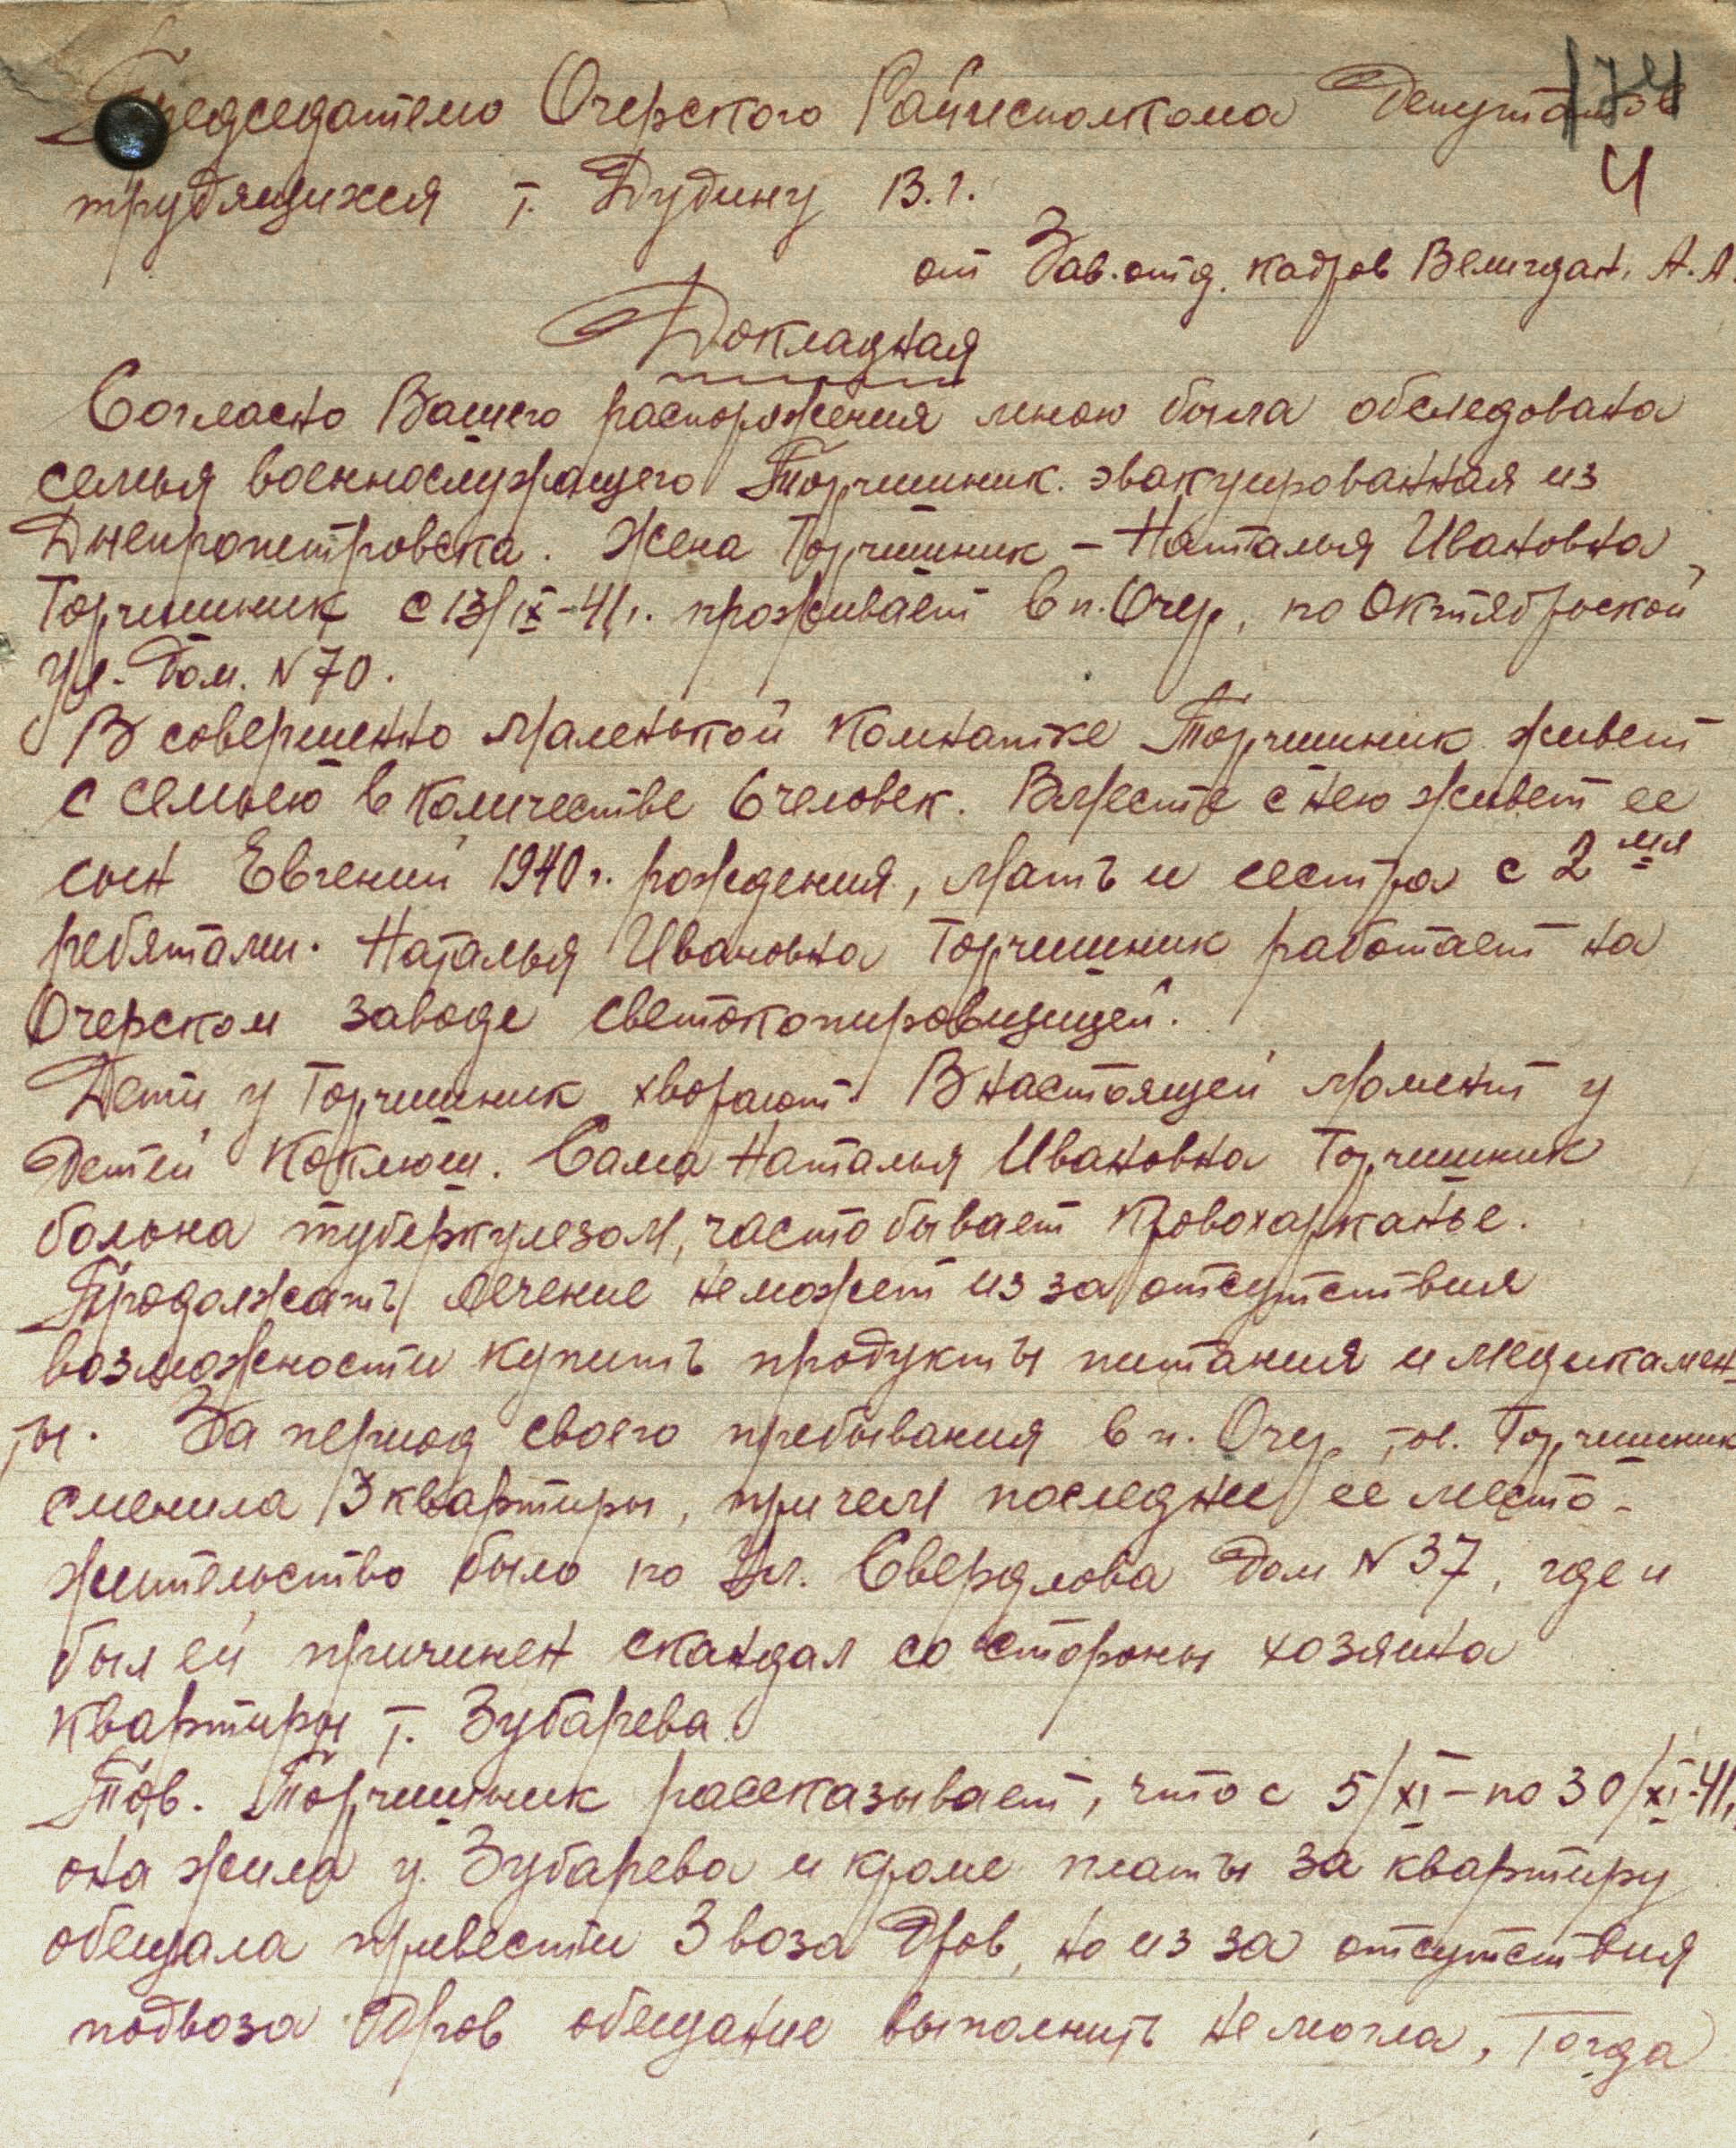 174
Председателю Очерского Райисполкома Депутатов
4
трудящихся т. Дудину В.Г.
от Зав. отд. кадров Велигдан. А.А.
Докладная
Согласно Вашего распоряжения мною была обследована
семья военнослужащего Торчинник. эвакуированная из
Днепропетровска. Жена Торчинник – Наталья Ивановна
Торчинник с 13/IX-41г. проживает в п. Очер, по Октябрьской
ул. Дом. N 70.
В совершенно маленькой комнатке Торчинник живет
с семьею в количестве 6 человек. Вместе с нею живет ее
сын Евгений 1940 г. рождения, мать и сестра с 2мя
ребятами. Наталья Ивановна Торчинник работает на
Очерском заводе светокопировщицей.
Дети у Торчинник хворают. В настоящей момент у
детей коклюш. Сама Наталья Ивановна Торчинник
больна туберкулезом, часто бывает кровохарканье.
Продолжать лечение не может из за отсутствия
возможности купить продукты питания и медикамен-
ты. За период своего пребывания в п. Очер тов. Торчинник
сменила 3 квартиры, причем последнее ее место-
жительство было по ул. Свердлова дом N 37, где и
был ей причинен скандал со стороны хозяина
квартиры т. Зубарева.
Тов. Торчинник рассказывает, что с 5/XI – по 30/XI-41г.
она жила у Зубарева и кроме платы за квартиру
обещала привести 3 воза дров, но из за отсутствия
подвоза дров обещание выполнить не могла, Тогда